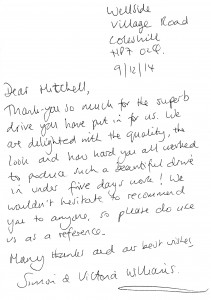 Wellside
Village Road
Coleshill
HP7 0LQ.
9/12/14
Dear Mitchell,
Thank-you so much for the superb
drive you have put in for us. We
are delighted with the quality, the
look and how hard you all worked
to produce such a beautiful drive
in under five days work! We
wouldn't hesitate to recommend
you to anyone, so please do use
us as a reference.
Many thanks and our best wishes
Simon & Victoria Williams.